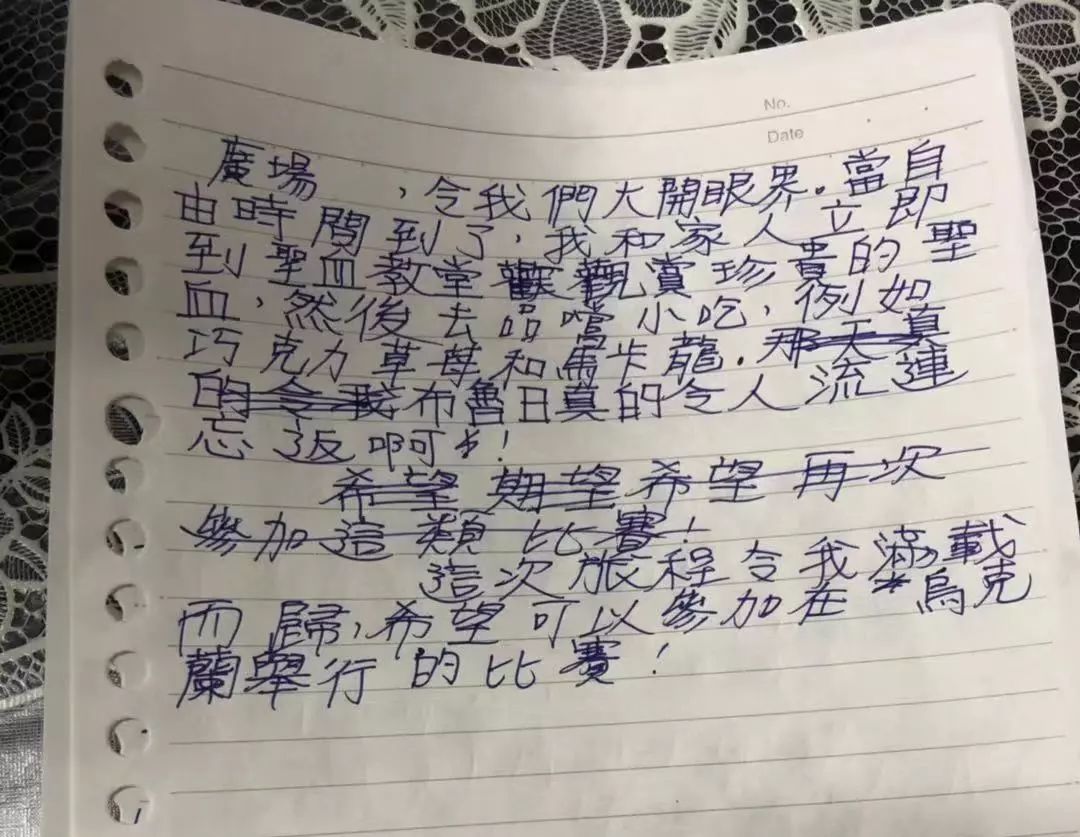 No.
Date
廣場 ，令我們大開眼界．當自
由時間到了，我和家人立即
到聖血教堂觀賞珍貴的聖
血，然後去品嚐小吃，例如
巧克力草莓和馬卡龍．那天真
的令我布魯日真的令人流連
忘返啊！
希望期望希望再次
參加這類比賽！
這次旅程令我滿載
而歸，希望可以參加在烏克
蘭舉行的比賽！